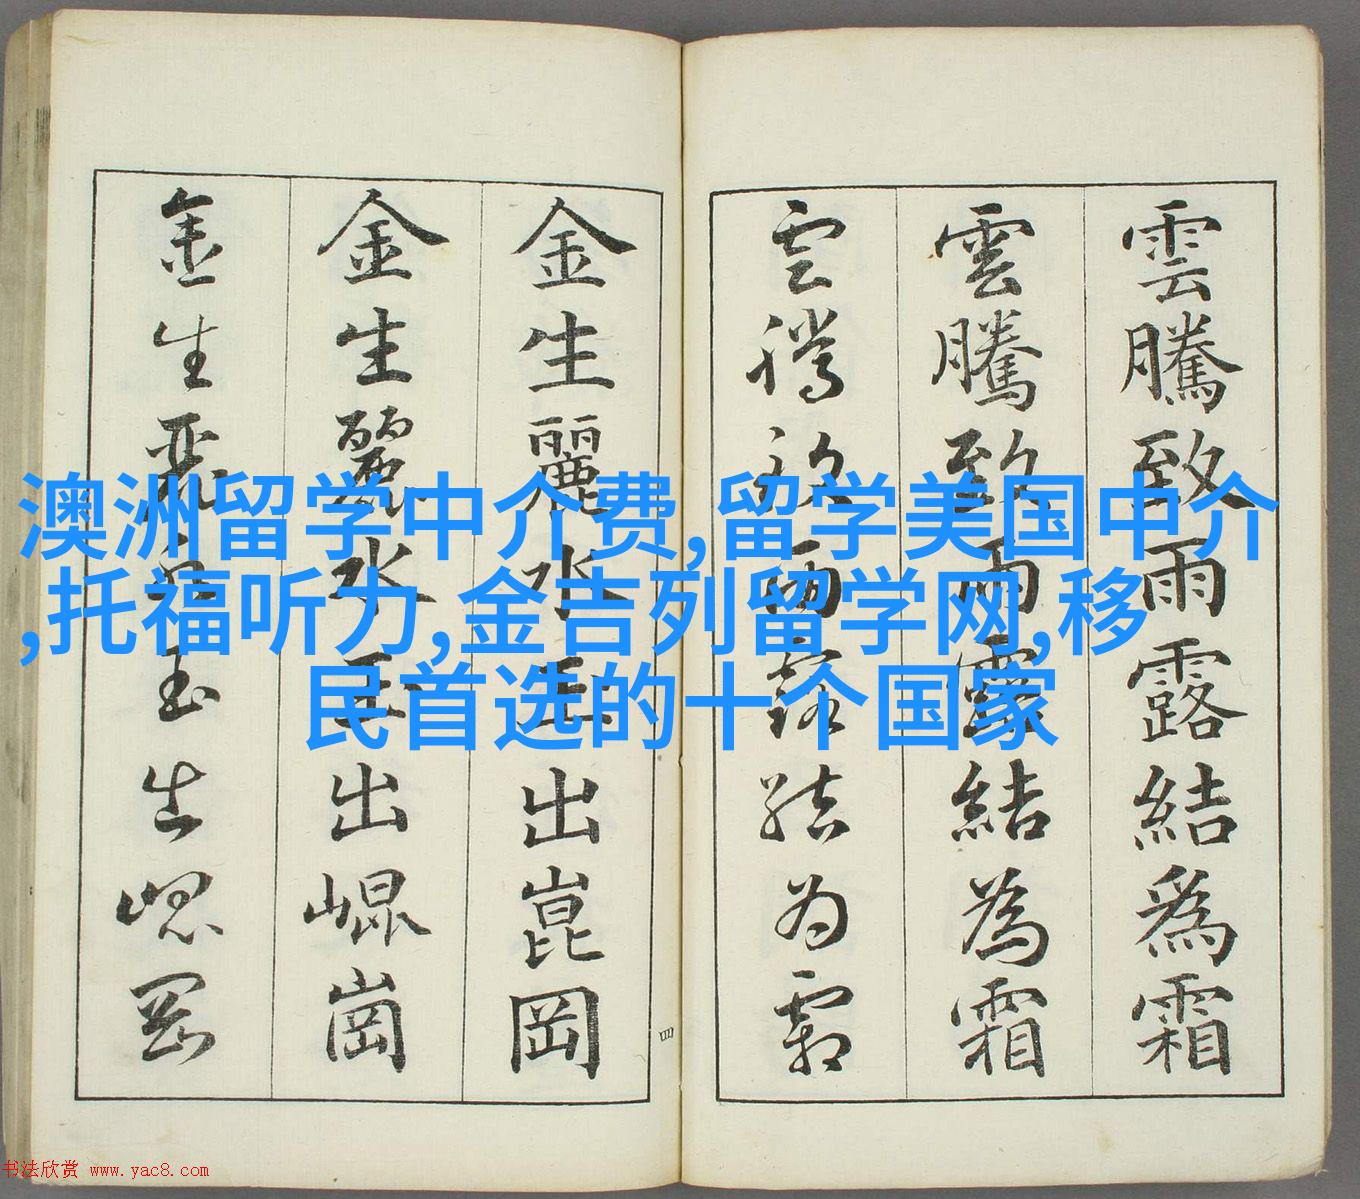 澳洲留学中介费,留学美国中介
,托福听力,金吉列留学网,移
民首选的十个国家
雲騰致雨露結爲霜
雲騰致雨露結為霜
雲騰致雨露結为霜
金生麗水玉出崑岡
金生麗水玉出崐崗
金生麗水玉出崐岡
四
书法欣赏 www.yac8.com